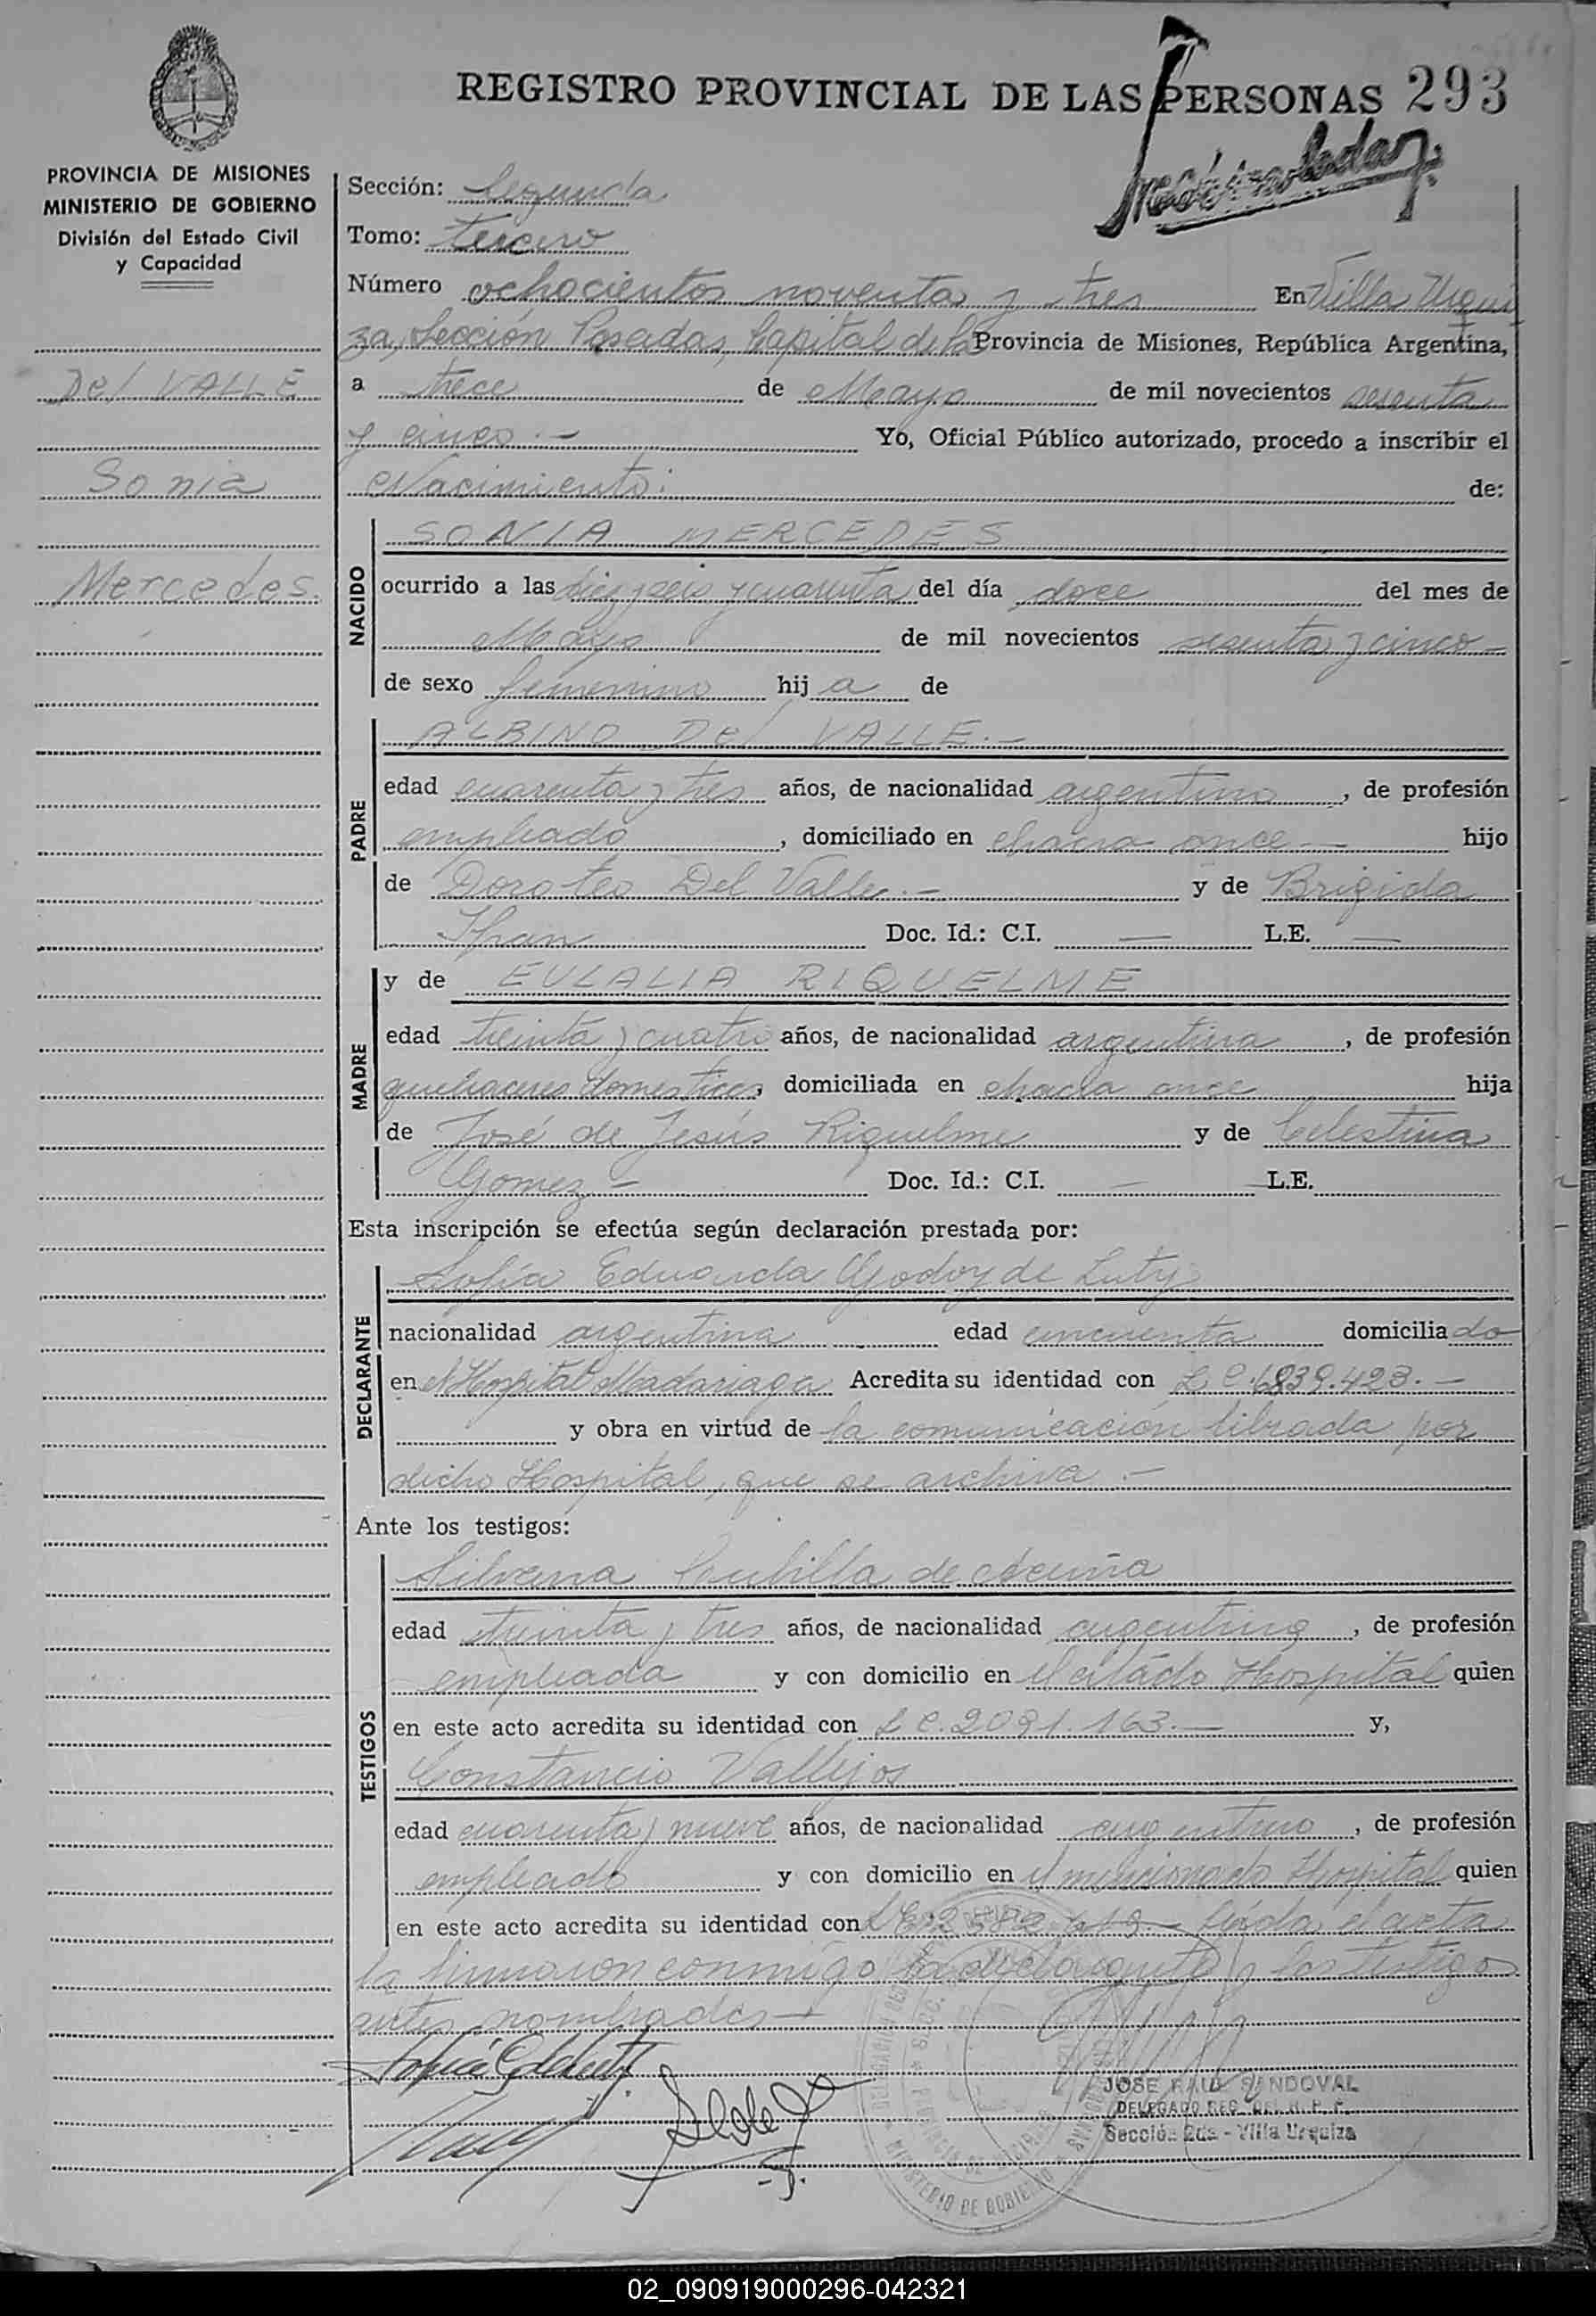 REGISTRO PROVINCIAL DE LAS PERSONAS 293
PROVINCIA DE MISIONES
MINISTERIO DE GOBIERNO
División del Estado Civil
y Capacidad
Del VALLE
Sonia
Mercedes.
Sección: Segunda
Tomo: tercero
Número ochocientos noventa y tres En Villa Urqui
za, Sección Posadas, Capital de la Provincia de Misiones, República Argentina,
a trece de Mayo de mil novecientos sesenta
y cinco.- Yo, Oficial Público autorizado, procedo a inscribir el
Nacimiento: de:
NACIDO
SONIA MERCEDES
ocurrido a las diez y seis y cuarenta del día doce del mes de
Mayo de mil novecientos sesenta y cinco-
de sexo femenino hij a de
PADRE
ALBINO Del VALLE.-
edad cuarenta y tres años, de nacionalidad argentino, de profesión
empleado, domiciliado en chacra once- hijo
de Doroteo Del Valle.- y de Brigida
Doc. Id.: C.I. — L.E. —
MADRE
y de EULALIA RIQUELME
edad treinta y cuatro años, de nacionalidad argentina, de profesión
quehaceres domesticos, domiciliada en chacra once hija
de José de Jesús Riquelme y de Celestina
Gomez- Doc. Id.: C.I. — L.E.
Esta inscripción se efectúa según declaración prestada por:
DECLARANTE
Sofía Eduarda Godoy de Luty
nacionalidad argentina edad cincuenta domicilia do
en el Hospital Madariaga Acredita su identidad con L C. 6839.423.-
y obra en virtud de la comunicación librada por
dicho Hospital, que se archiva.-
Ante los testigos:
TESTIGOS
Silvana de Acuña
edad treinta y tres años, de nacionalidad argentina, de profesión
empleada y con domicilio en el citado Hospital quien
en este acto acredita su identidad con L C. 2091.163.- y,
Constancio Vallejos
edad cuarenta y nueve años, de nacionalidad argentino, de profesión
empleado y con domicilio en el mencionado Hospital quien
en este acto acredita su identidad con Leída el acta
la firmaron conmigo la declarante y los testigos
antes nombrados-
JOSE RAUL SANDOVAL
DELEGADO REG. DEL R. P. P.
Sección 2da - Villa Urquiza
MINISTERIO DE GOBIERNO
02_090919000296-042321